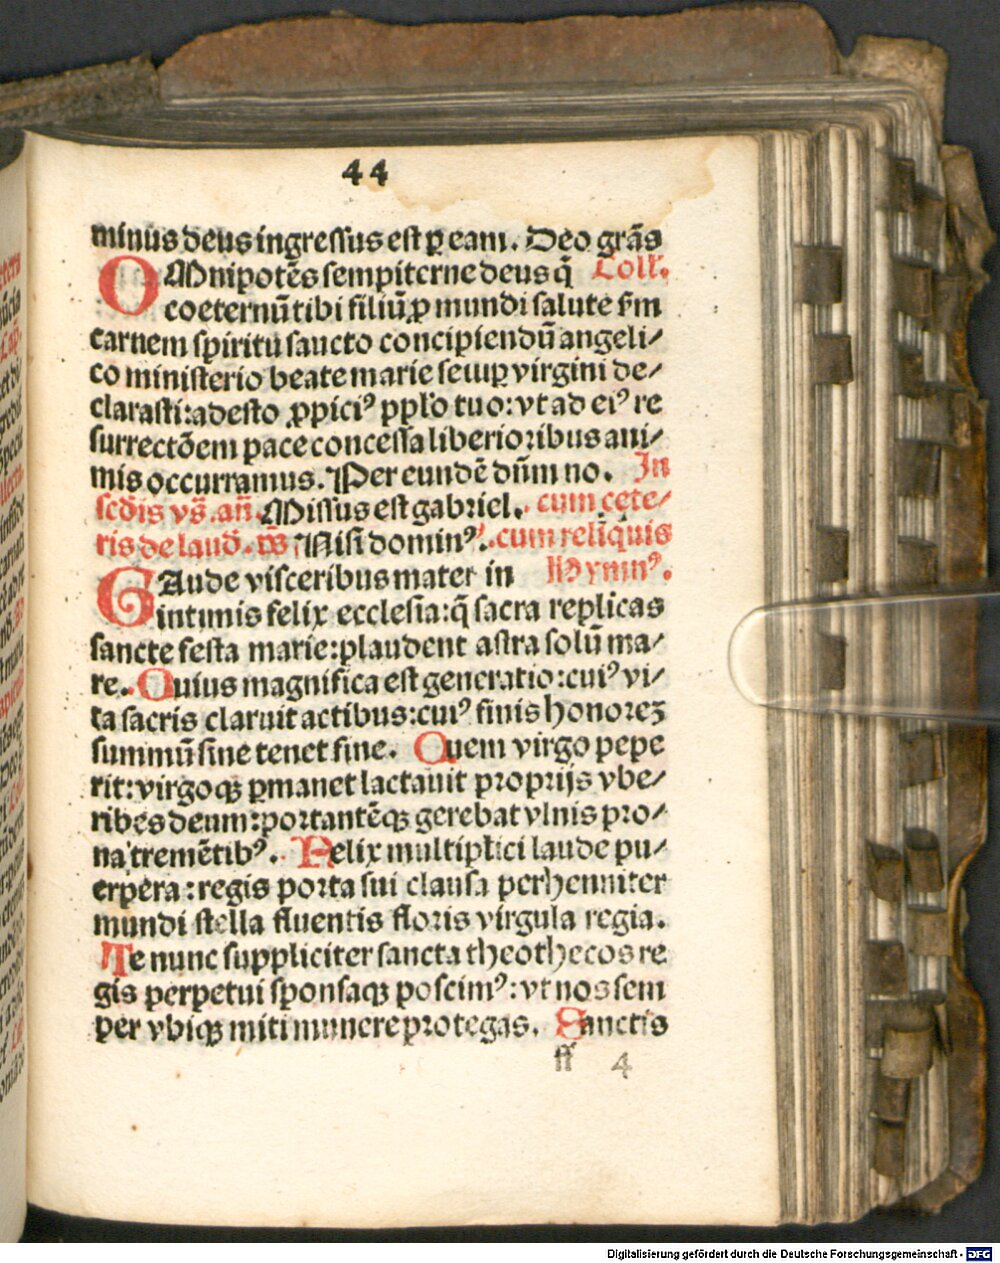 44
minus deus ingressus est ꝑ eam. Deo grãs
OMnipotẽs sempiterne deus q̃ Coll̃.
coeternũ tibi filiũ ꝓ mundi salute f̃m
carnem spiritu sancto concipiendũ angeli/
co ministerio beate marie semꝑ virgini de/
clarasti: adesto ꝓpiciꝰ pplo tuo: vt ad eiꝰ re
surrectõem pace concessa liberioribus ani/
mis occurramus. Per eundẽ dñm no. In
scdis vs̃. añ. Missus est gabriel. cum cete/
ris de laud. vs̃ Nisi dominꝰ. cum reliquis
GAude visceribus mater in Hymnꝰ.
intimis felix ecclesia: q̃ sacra replicas
sancte festa marie: plaudent astra solũ ma/
re. Cuius magnifica est generatio: cuiꝰ vi/
ta sacris claruit actibus: cuiꝰ finis honoreꝫ
summũ sine tenet fine. Quem virgo pepe
rit: virgoqꝫ ꝑmanet lactauit proprijs vbe/
ribes deum: portantẽqꝫ gerebat vlnis pro/
na tremẽtibꝰ. Felix multiplici laude pu/
erpera: regis porta sui clausa perhenniter
mundi stella fluentis floris virgula regia.
Te nunc suppliciter sancta theothecos re
gis perpetui sponsaqꝫ poscimꝰ: vt nos sem
per vbiqꝫ miti munere protegas. Sanctis
ff 4
Digitalisierung gefördert durch die Deutsche Forschungsgemeinschaft - DFG